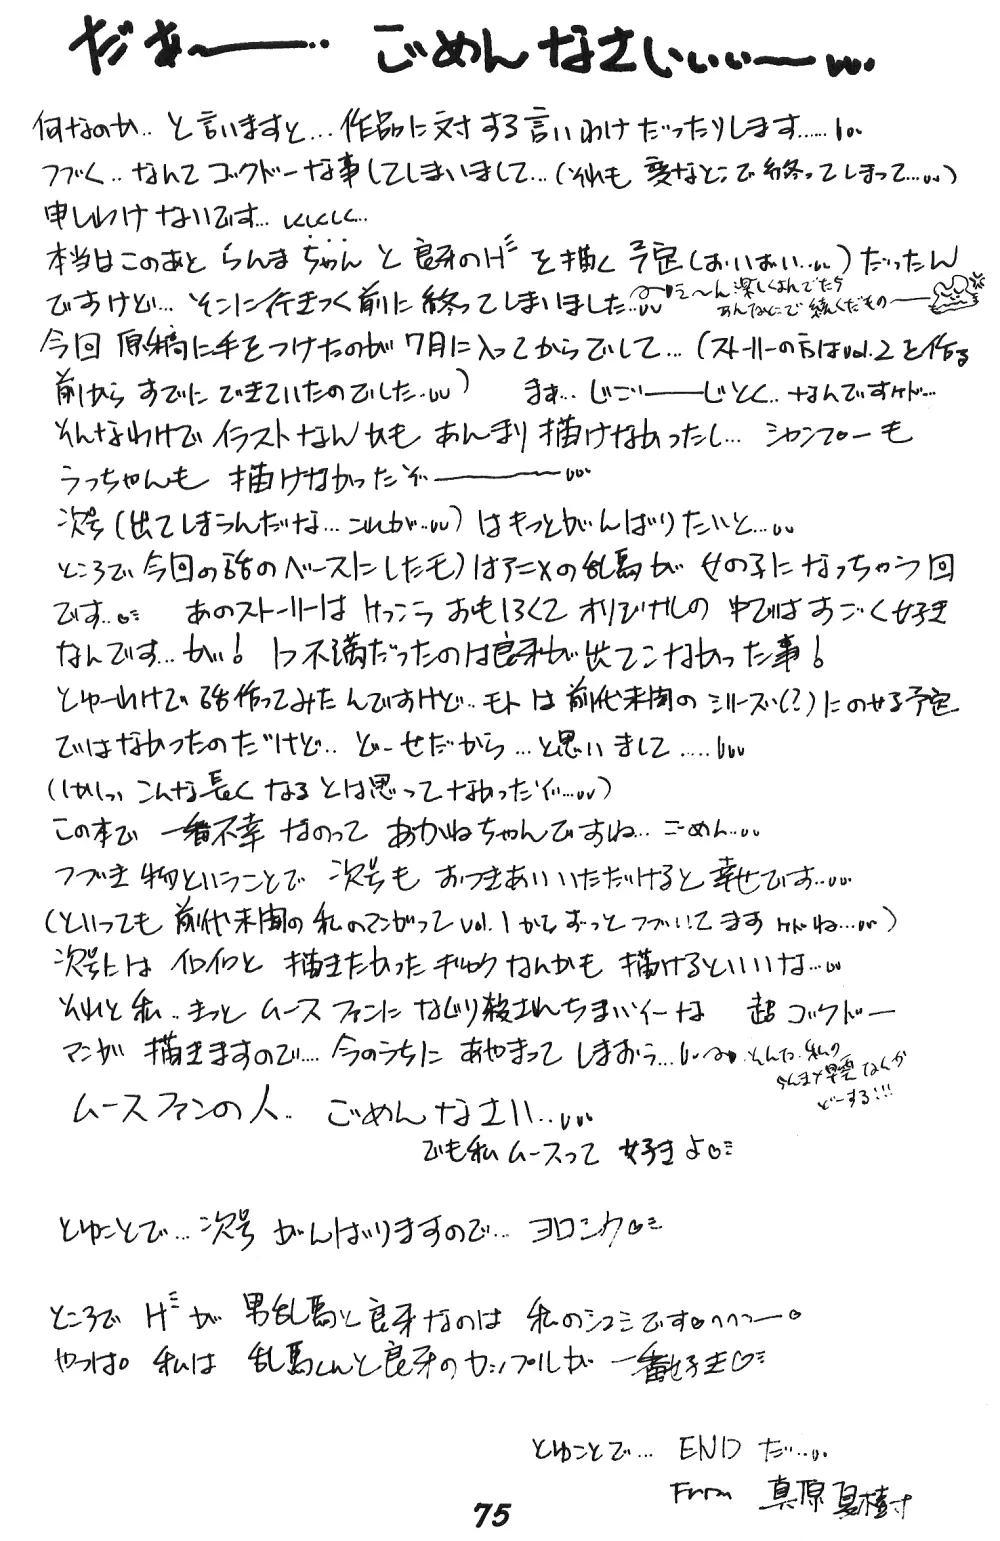 だぁ〜――‥ ごめんなさいぃぃ―…
何なのか‥と言いますと…作品に対する言いわけだったりします……
つづく‥なんてゴクドーな事してしまいまして…(それも 変なとこで終ってしまって…)
申しわけないです…しくしく…
本当はこのあと らんまちゃんと良牙のHを描く予定(おいおい…)だったん
ですけど… そこに行きつく前に終ってしまいました…
え〜ん楽しくよんでたら
あんなとこで続くだもの――
今回 原稿に手をつけたのが7月に入ってからでして…(ストーリーの方はvol.2を作る
前からすでにできていたのでした…) まぁ… じごー――じとく‥なんですけど…
そんなわけでイラストなんかも あんまり描けなかったし… シャンプーも
うっちゃんも 描けなかったぞ―――…
次号(出てしまうんだな…これが…)はもっとがんばりたいと…
ところで今回の話のベースにしたモノはアニメの乱馬が女の子になっちゃう回
です… あのストーリーは けっこうおもしろくてオリジナルの中ではすごく好き
なんです…が! 1つ不満だったのは良牙が出てこなかった事!
とゆーわけで話作ってみたんですけど‥モトは前代未聞のシリーズ(?)にのせる予定
ではなかったのだけど‥どーせだから…と思いまして……
(しかしっ こんな長くなるとは思ってなかったぞ…)
この本で 一番不幸なのって あかねちゃんですね… ごめん…
つづき物ということで 次号も おつきあいいただけると幸せです…
(といっても 前代未聞の私のマンガってvol.1からずっとつづいてますけどね…)
次号には イロイロと 描きたかったギャグなんかも描けるといいな…
それと私‥きっと ムースファンになじり殺されちまいそーな 超ゴクドー
マンガ 描きますので… 今のうちに あやまって しまおう…
そんな私の
らんま×早雲なんか
どーする!!!
ムースファンの人‥ ごめんなさい…
でも私ムースって 好きよ♡
とゆことで…次号 がんばりますので… ヨロシク♡
ところでHが 男乱馬と良牙なのは 私のシュミです。へへっ―。
やっぱ。私は 乱馬くんと良牙のカップルが 一番好き♡
とゆことで… END だ…
From 真原夏樹
75